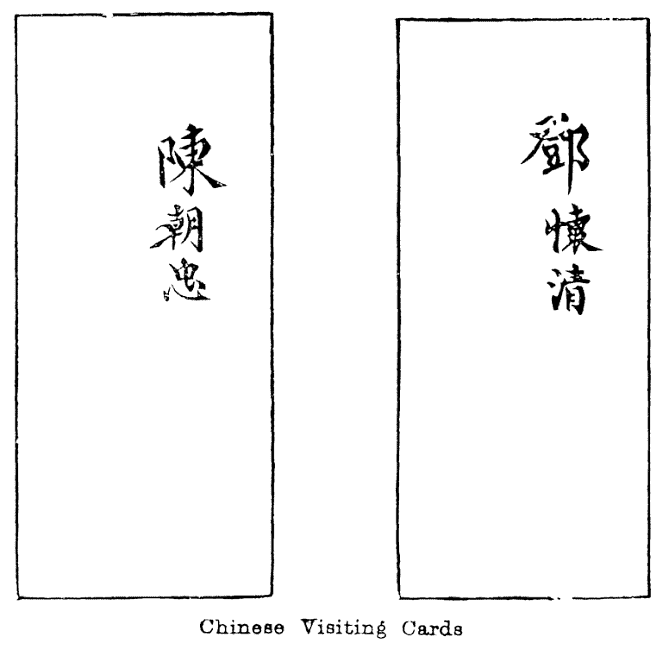 陳朝忠
鄧懷清
Chinese Visiting Cards